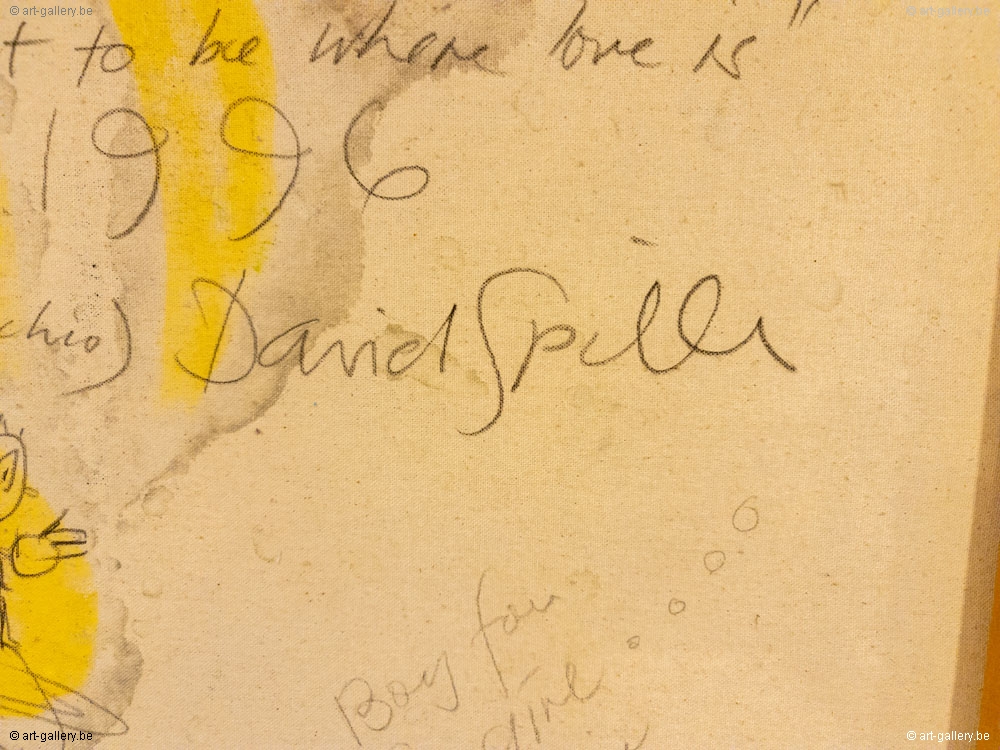 © art-gallery.be
© art-gallery.be
t to be where love is"
1996
chio) David Spiller
Boy for
girl
© art-gallery.be
© art-gallery.be